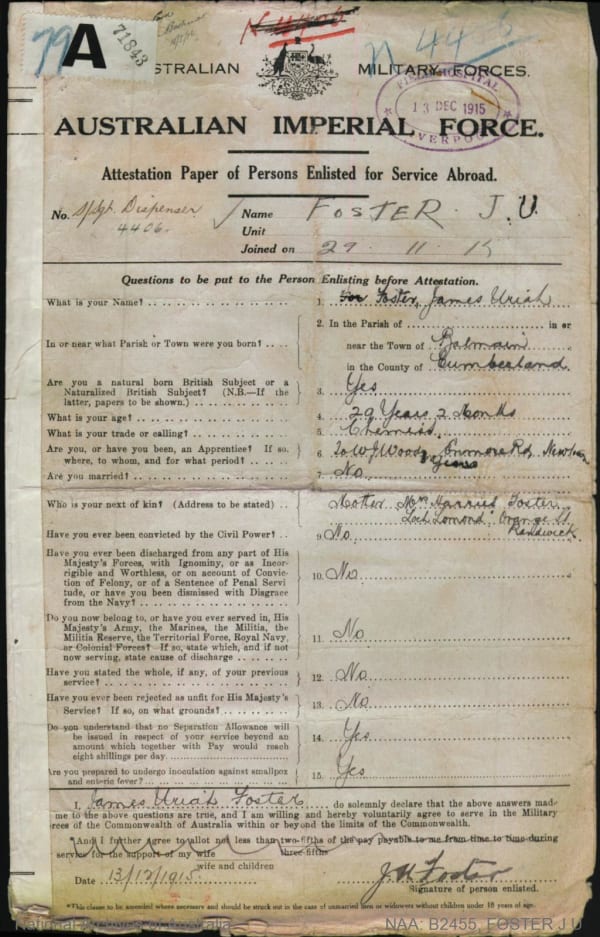 79
A
71843
N 4406
AUSTRALIAN MILITARY FORCES.
FIELD HOSPITAL
13 DEC 1915
LIVERPOOL
AUSTRALIAN IMPERIAL FORCE.
Attestation Paper of Persons Enlisted for Service Abroad.
No. S/Sgt. Dispenser 4406. Name FOSTER. J. U.
Unit
Joined on 29. 11. 15
Questions to be put to the Person Enlisting before Attestation.
What is your Name? 1. Foster, James Uriah
In or near what Parish or Town were you born? 2. In the Parish of in or
near the Town of Balmain
in the County of Cumberland
Are you a natural born British Subject or a
Naturalized British Subject? (N.B.—If the
latter, papers to be shown.) 3. Yes
What is your age? 4. 29 Years 2 Months
What is your trade or calling? 5. Chemist
Are you, or have you been, an Apprentice? If so. 6. To W J Woods, Enmore Rd, Newtown
where, to whom, and for what period? years
Are you married? 7. No
Who is your next of kin? (Address to be stated) Mother Mrs Harriet Foster
"Loch Lomond" Orange St
Randwick
Have you ever been convicted by the Civil Power? 9. No
Have you ever been discharged from any part of His
Majesty's Forces, with Ignominy, or as Incor-
rigible and Worthless, or on account of Convic-
tion of Felony, or of a Sentence of Penal Servi
tude, or have you been dismissed with Disgrace
from the Navy? 10. No
Do you now belong to, or have you ever served in, His
Majesty's Army, the Marines, the Militia, the
Militia Reserve, the Territorial Force, Royal Navy,
or Colonial Forces? If so, state which, and if not
now serving, state cause of discharge 11. No
Have you stated the whole, if any, of your previous
service? 12. No
Have you ever been rejected as unfit for His Majesty's
Service? If so, on what grounds? 13. No
Do you understand that no Separation Allowance will
be issued in respect of your service beyond an
amount which together with Pay would reach
eight shillings per day 14. Yes
Are you prepared to undergo inoculation against smallpox
and enteric fever? 15. Yes
I, James Uriah Foster do solemnly declare that the above answers made
me to the above questions are true, and I am willing and hereby voluntarily agree to serve in the Military
rces of the Commonwealth of Australia within or beyond the limits of the Commonwealth.
*And I further agree to allot not less than two-fifths of the pay payable to me from time to time during
three-fifths
service for the support of my wife
wife and children
Date 13/12/1915. J U Foster
Signature of person enlisted.
*This clause to be amended where necessary and should be struck out in the case of unmarried men or widowers without children under 18 years of age.
National Archives of Australia NAA: B2455, FOSTER J U